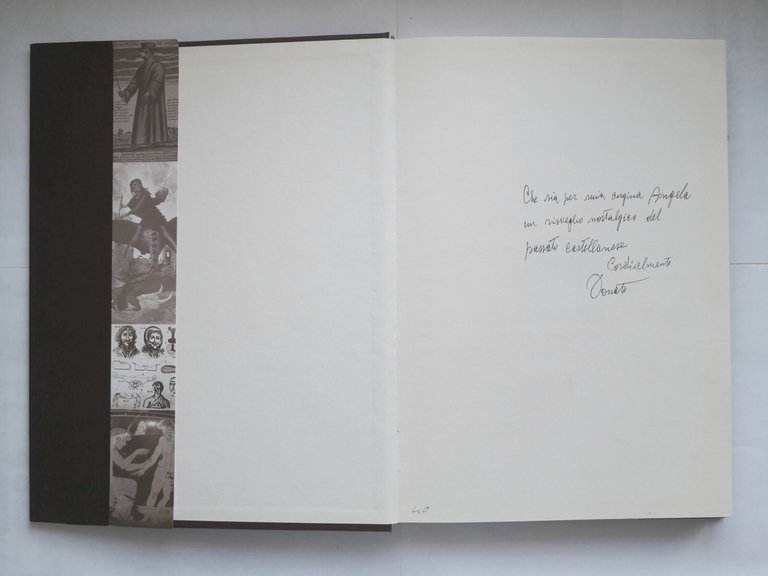 Che sia per mia cugina Angela
un risveglio nostalgico del
passato castellanese
Cordialmente
Donato
40